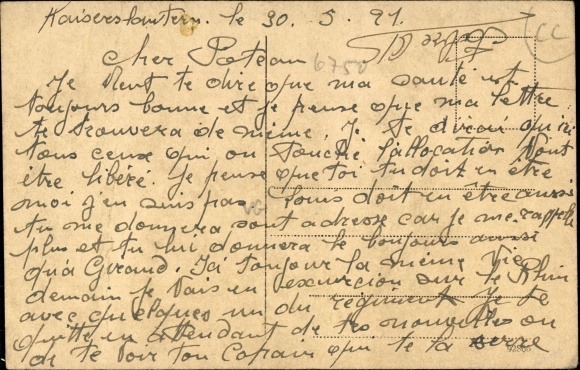 Kaiserslautern. le 30. 5. 21.
Cher Poteau
6750
CC
Je vient te dire que ma santé est
toujours bonne et je pense que ma lettre
te trouvera de même. Je te dirai qu'ici
tous ceux qui on touché l'allocation vont
être libéré. Je pense que toi tu doit en être
moi j'en suis pas. Louis doit en être aussi
tu me donnera sont adresse car je me rappelle
plus et tu lui donnera le bonjour aussi
qu'a Giraud. Ici toujour la même vie
demain je vais en excursion sur le Rhin
avec quelques un du régiment. Je te
quitte en attendant de tes nouvelles ou
de te voir ton Copain qui te la serre